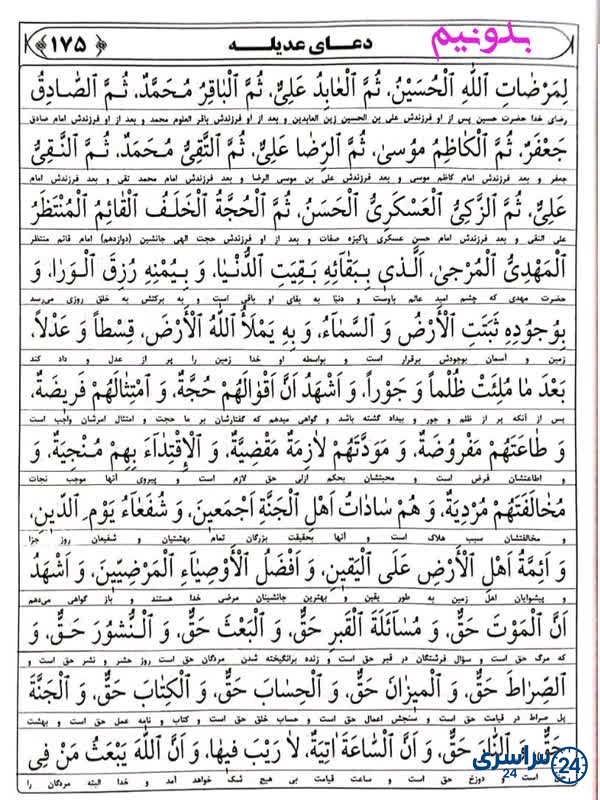 بدونیم
دعــای عدیلــه
﴿۱۷۵﴾
لِمَرْضَاتِ ٱللّٰهِ ٱلْحُسَیْنُ، ثُمَّ ٱلْعَابِدُ عَلِیٌّ، ثُمَّ ٱلْبَاقِرُ مُحَمَّدٌ، ثُمَّ ٱلصَّادِقُ
رضای خدا حضرت حسین پس از او فرزندش علی بن الحسین زین العابدین و بعد از او فرزندش باقر العلوم محمد و بعد از او فرزندش امام صادق
جَعْفَرٌ، ثُمَّ ٱلْکَاظِمُ مُوسیٰ، ثُمَّ ٱلرِّضَا عَلِیٌّ، ثُمَّ ٱلتَّقِیُّ مُحَمَّدٌ، ثُمَّ ٱلنَّقِیُّ
جعفر و بعد فرزندش امام کاظم موسی و بعد فرزندش علی بن موسی الرضا و بعد فرزندش امام محمد تقی و بعد فرزندش امام
عَلِیٌّ، ثُمَّ ٱلزَّکِیُّ ٱلْعَسْکَرِیُّ ٱلْحَسَنُ، ثُمَّ ٱلْحُجَّةُ ٱلْخَلَفُ ٱلْقَائِمُ ٱلْمُنْتَظَرُ
علی النقی و بعد فرزندش امام حسن عسکری پاکیزه صفات و بعد از او فرزندش حجت الهی جانشین (دوازدهم) امام قائم منتظر
ٱلْمَهْدِیُّ ٱلْمُرْجیٰ، ٱلَّذی بِبَقَائِهِ بَقِیَتِ ٱلدُّنْیٰا، وَ بِیُمْنِهِ رُزِقَ ٱلْوَرٰا، وَ
حضرت مهدی که چشم امید عالم باوست و دنیا به بقای او باقی است و به برکتش به خلق روزی می‌رسد
بِوُجُودِهِ ثَبَتَتِ ٱلْأَرْضُ وَ ٱلسَّمٰاءُ، وَ بِهِ یَمْلَأُ ٱللّٰهُ ٱلْأَرْضَ، قِسْطاً وَ عَدْلاً،
زمین و آسمان بوجودش برقرار است و بواسطه او خدا زمین را پر از عدل و داد کند
بَعْدَ مٰا مُلِئَتْ ظُلْماً وَ جَوْراً، وَ اَشْهَدُ اَنَّ اَقْوٰالَهُمْ حُجَّةٌ، وَ ٱمْتِثٰالَهُمْ فَریضَةٌ،
پس از آنکه پر از ظلم و جور و بیداد گشته باشد و گواهی میدهم که گفتارشان بر ما حجت و امتثال امرشان واجب است
وَ طٰاعَتَهُمْ مَفْرُوضَةٌ، وَ مَوَدَّتَهُمْ لٰازِمَةٌ مَقْضِیَّةٌ، وَ ٱلْاِقْتِدٰاءَ بِهِمْ مُنْجِیَةٌ، وَ
و اطاعتشان فرض است و محبتشان بحکم ازلی حق لازم است و پیروی آنها موجب نجات
مُخٰالَفَتَهُمْ مُرْدِیَةٌ، وَ هُمْ سٰادٰاتُ اَهْلِ ٱلْجَنَّةِ اَجْمَعینَ، وَ شُفَعٰاءُ یَوْمِ ٱلدّینِ،
و مخالفتشان سبب هلاک است و آنها بحقیقت بزرگان تمام بهشتیان و شفیعان روز جزا
وَ اَئِمَّةُ اَهْلِ ٱلْأَرْضِ عَلَی ٱلْیَقینِ، وَ اَفْضَلُ ٱلْأَوْصِیٰاءِ ٱلْمَرْضِیّینَ، وَ اَشْهَدُ
و پیشوایان اهل زمین به طور یقین و بهترین جانشینان مرضی خدا هستند و باز گواهی می‌دهم
اَنَّ ٱلْمَوْتَ حَقٌّ، وَ مُسٰائَلَةَ ٱلْقَبْرِ حَقٌّ، وَ ٱلْبَعْثَ حَقٌّ، وَ ٱلنُّشُورَ حَقٌّ، وَ
که مرگ حق است و سؤال فرشتگان در قبر حق است و زنده برانگیخته شدن مردگان حق است روز حشر و نشر حق است و
ٱلصِّرٰاطَ حَقٌّ، وَ ٱلْمیزٰانَ حَقٌّ، وَ ٱلْحِسٰابَ حَقٌّ، وَ ٱلْکِتٰابَ حَقٌّ، وَ ٱلْجَنَّةَ
پل صراط در قیامت حق است و سنجش اعمال حق است و حساب خلق حق است و کتاب و نامه عمل حق است و بهشت
حَقٌّ، وَ ٱلنّٰارَ حَقٌّ، وَ اَنَّ ٱلسّٰاعَةَ اٰتِیَةٌ، لٰا رَیْبَ فیهٰا، وَ اَنَّ ٱللّٰهَ یَبْعَثُ مَنْ فِی
حق است و دوزخ حق است و ساعت قیامت بی هیچ شک خواهد آمد و خدا البته مردگان را
سراسری 24
24